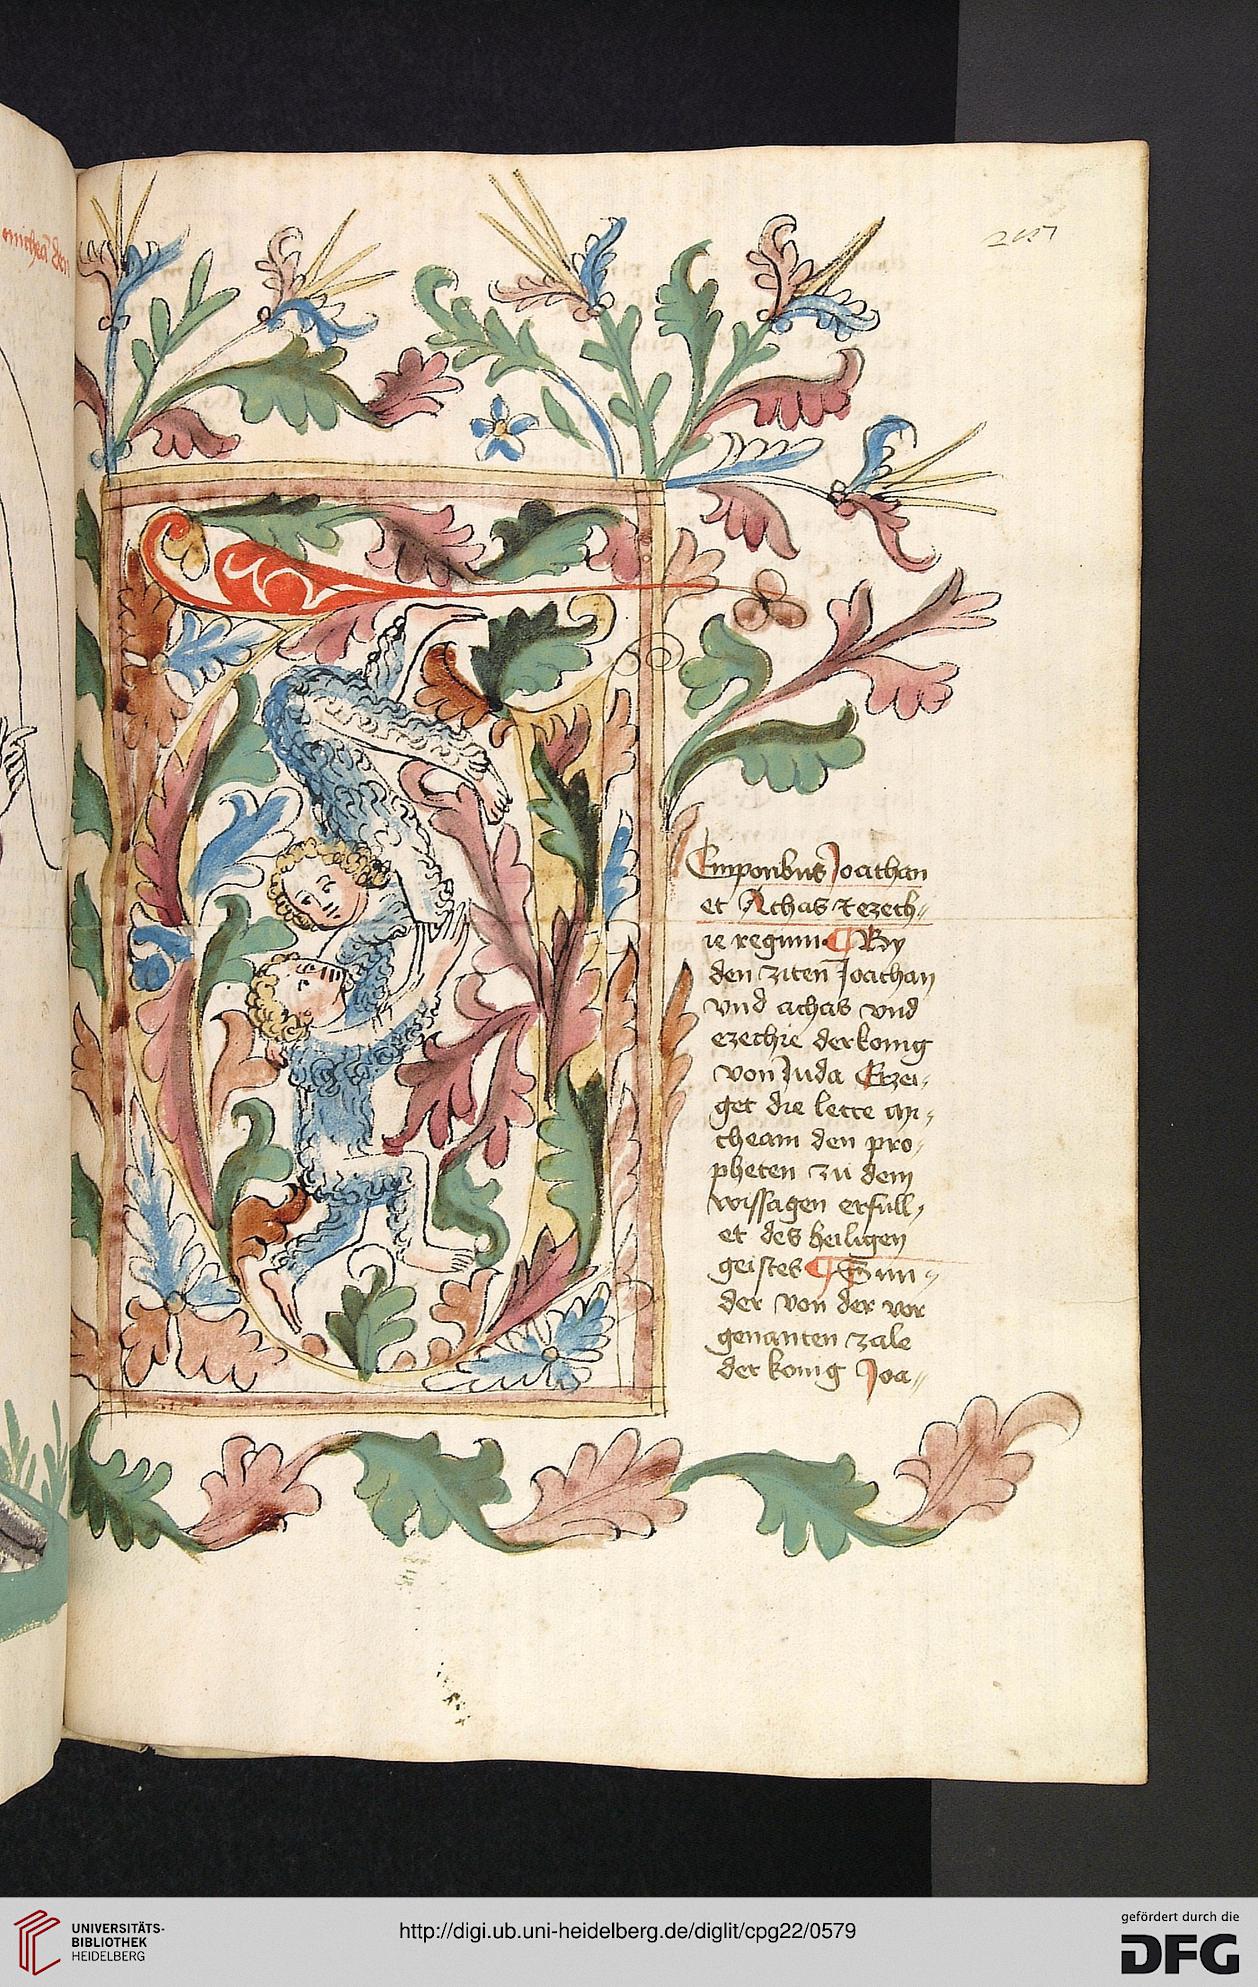 2c57
T
Emporibus Joathan
et Achas et ezech〃
ie regum ¶ By
den ziten Joathan
vnd achas vnd
ezechie der konig
von Juda Erzei〃
get die lette my〃
cheam den pro〃
pheten zu dem
wissagen erfull〃
et des heiligen
geistes ¶ Sun〃
der von der vor
genanten zale
der konig Joa〃
UNIVERSITÄTS-
BIBLIOTHEK
HEIDELBERG
http://digi.ub.uni-heidelberg.de/diglit/cpg22/0579
gefördert durch die
DFG